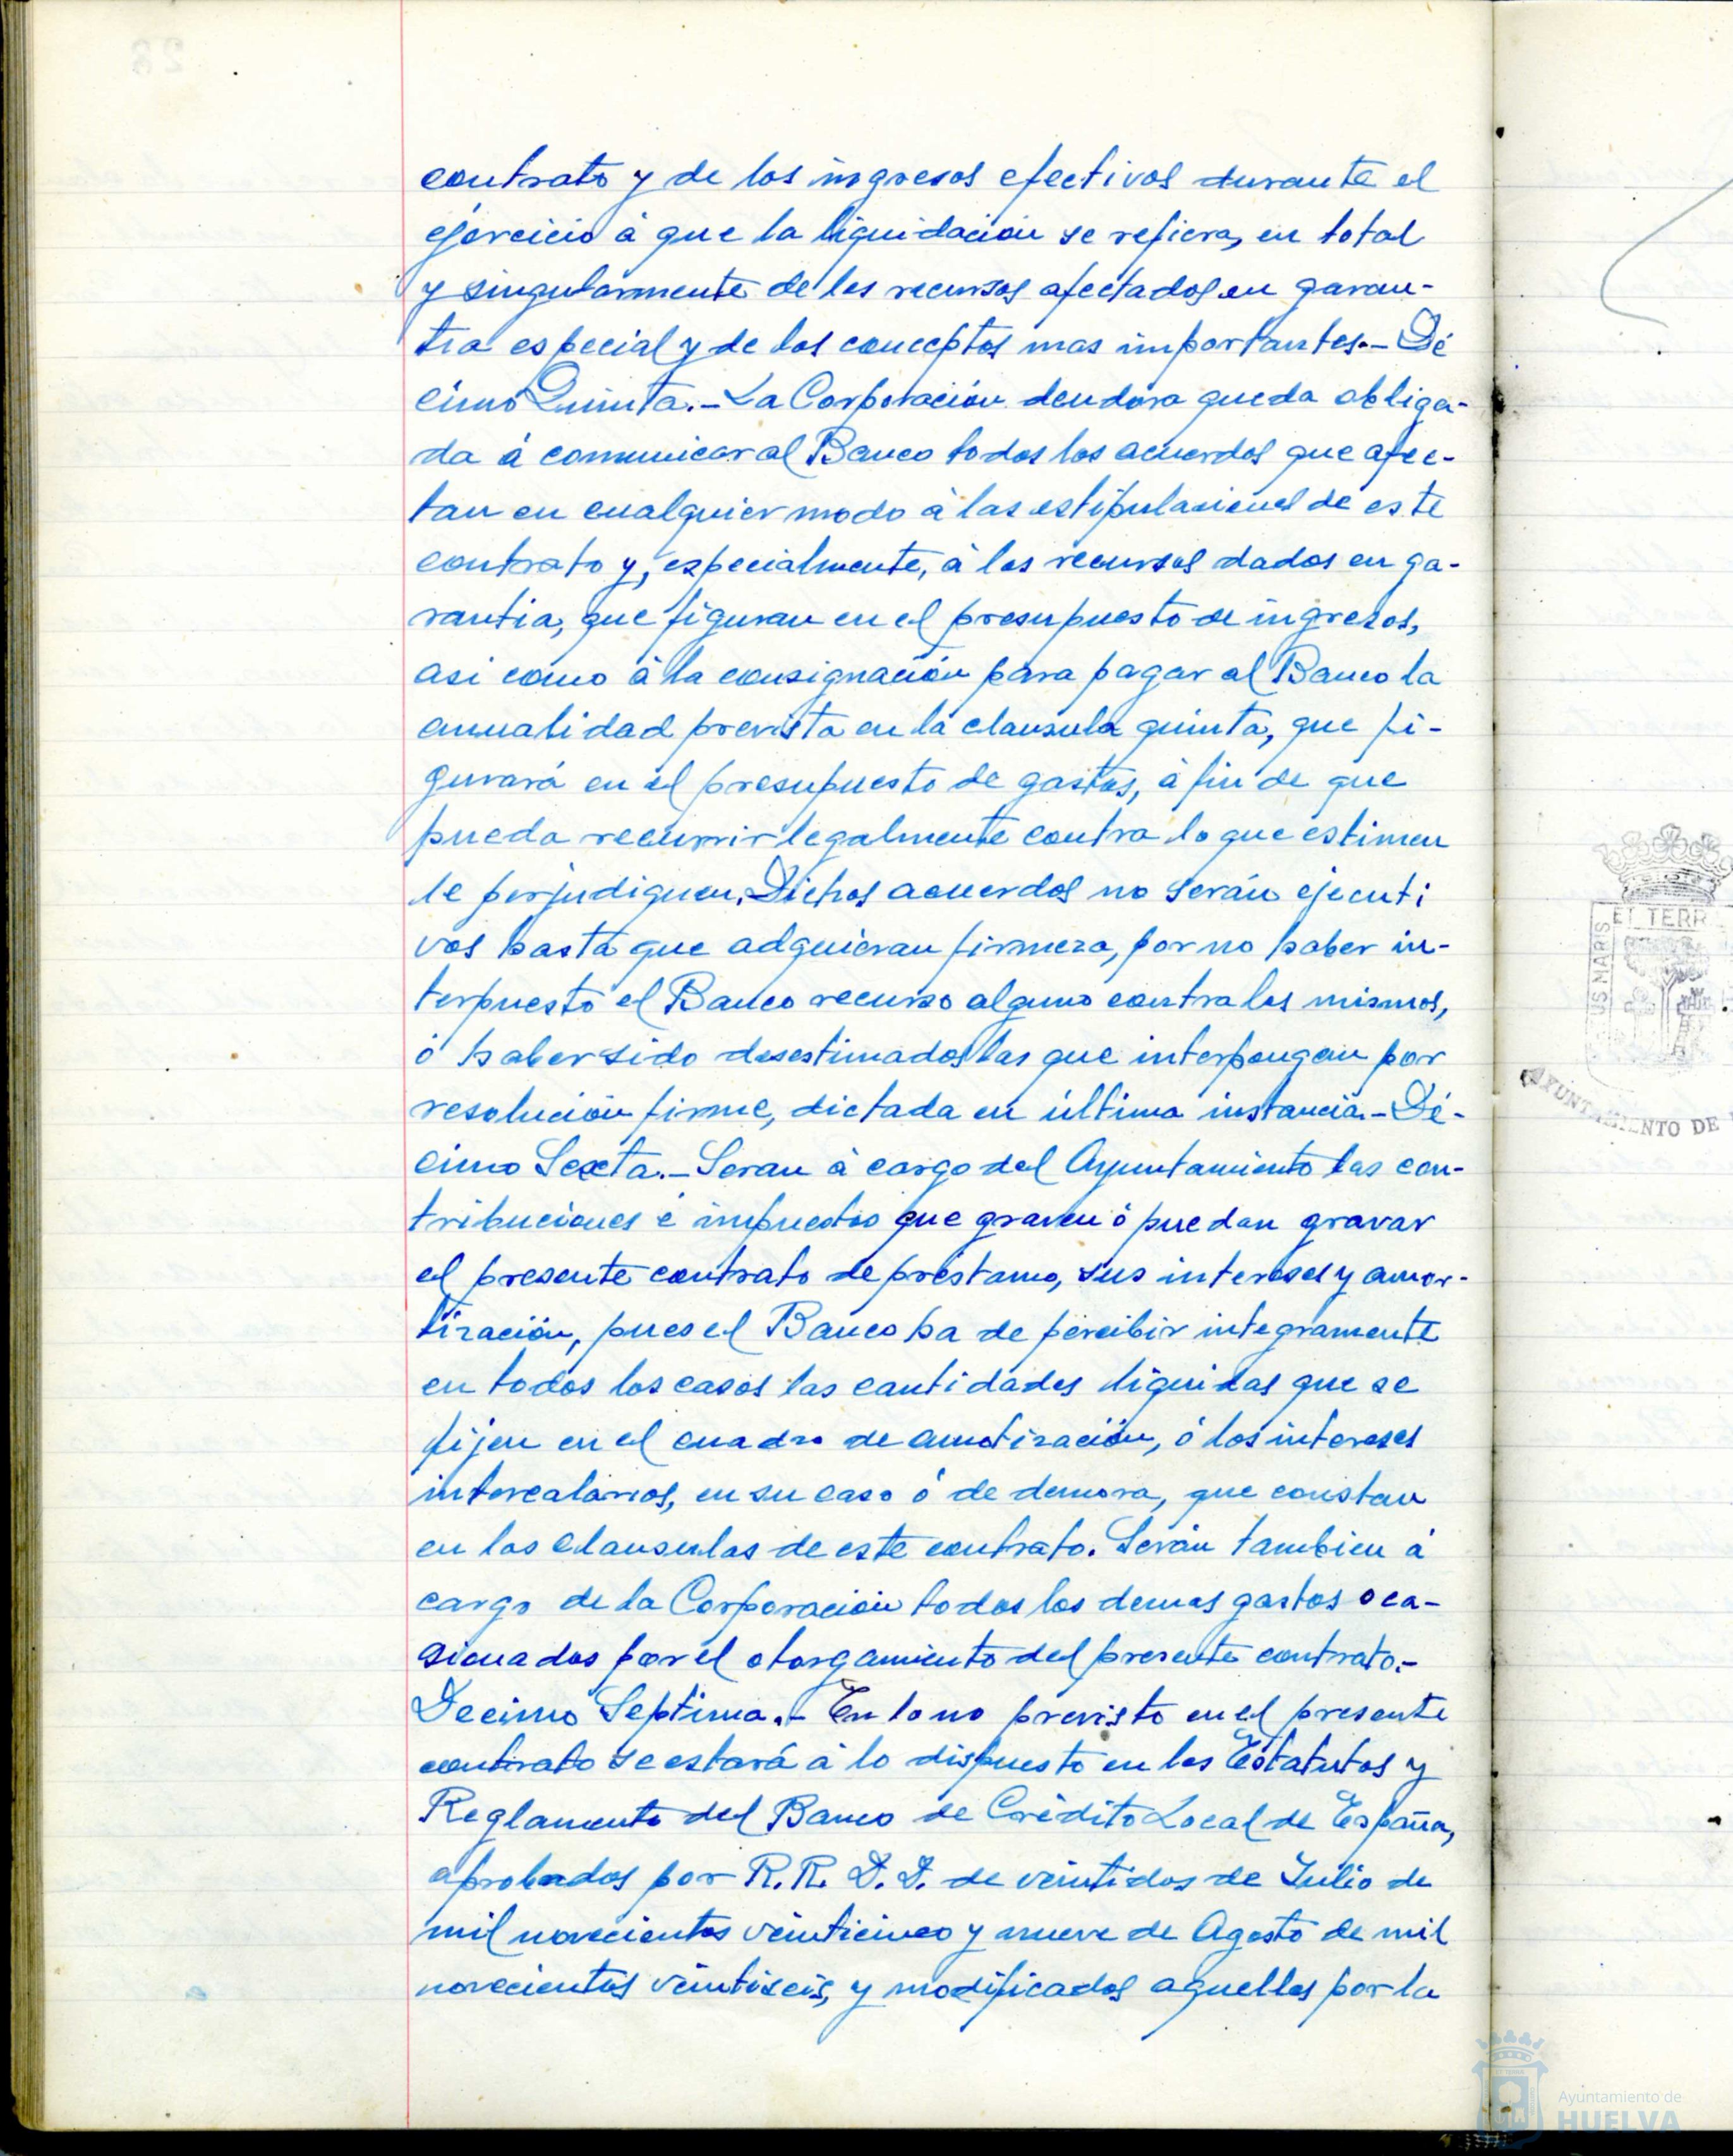 contrato y de los ingresos efectivos durante el
ejercicio á que la liquidación se refiera, en total
y singularmente de los recursos afectados en garan-
tia especial y de los conceptos mas importantes.- Dé
cimo Quinta.- La Corporación deudora queda obliga-
da á comunicar al Banco todos los acuerdos que afec-
tan en cualquier modo á las estipulaciones de este
contrato y, especialmente, á los recursos dados en ga-
rantia, que figuran en el presupuesto de ingresos,
asi como á la consignación para pagar al Banco la
anualidad prevista en la clausula quinta, que fi-
gurará en el presupuesto de gastos, á fin de que
pueda recurrir legalmente contra lo que estimen
le perjudiquen. Dichos acuerdos no serán ejecuti
vos hasta que adquieran firmeza, por no haber in-
terpuesto el Banco recurso alguno contra los mismos,
ó haber sido desestimados los que interpongan por
resolución firme, dictada en última instancia.- Dé-
cimo Sexta.- Seran á cargo del Ayuntamiento las con-
tribuciones é impuestos que graven ó puedan gravar
el presente contrato de préstamo, sus intereses y amor-
tización, pues el Banco ha de percibir integramente
en todos los casos las cantidades liquidas que se
fijen en el cuadro de amotización, ó los intereses
intercalarios, en su caso ó de demora, que constan
en las clausulas de este contrato. Serán tambien á
cargo de la Corporación todos los demas gastos oca-
sionados por el otorgamiento del presente contrato.-
Decimo Septima.- En lo no previsto en el presente
contrato se estará á lo dispuesto en los Estatutos y
Reglamento del Banco de Crédito Local de España,
aprobados por R.R. D.D. de veintidos de Julio de
mil novecientos veinticinco y nueve de Agosto de mil
novecientos veintiseis, y modificados aquellos por la
ET TERR
US MARS
AYUNTAMIENTO DE
Ayuntamiento de
HUELVA